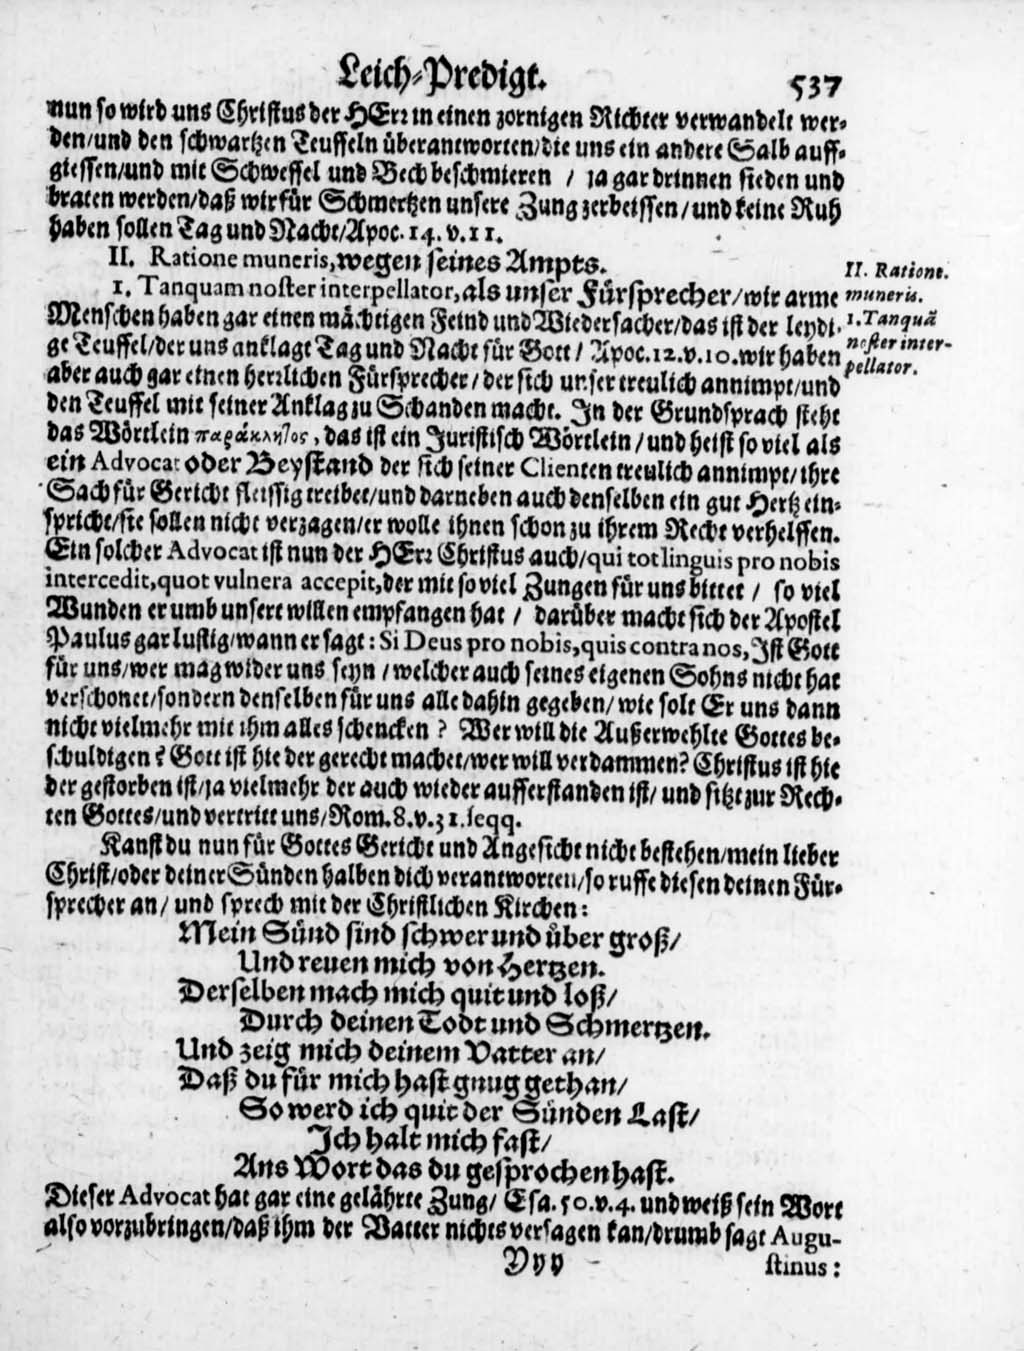 Leich-Predigt. 537
nun so wird uns Christus der HErr in einen zornigen Richter verwandelt wer-
den/und den schwartzen Teuffeln überantworten/die uns ein andere Salb auff-
giessen/und mit Schweffel und Bech beschmieren / ja gar drinnen sieden und
braten werden/daß wir für Schmertzen unsere Zung zerbeissen/und keine Ruh
haben sollen Tag und Nacht/Apoc. 14. v. 11.
II. Ratione muneris, wegen seines Ampts.
II. Ratione.
1. Tanquam noster interpellator, als unser Fürsprecher/wir arme
muneris.
Menschen haben gar einen mächtigen Feind und Wiedersacher/das ist der leydi-
1. Tanquã
ge Teuffel/der uns anklagt Tag und Nacht für Gott / Apoc. 12. v. 10. wir haben
noster inter-
aber auch gar einen herrlichen Fürsprecher/der sich unser treulich annimpt/und
pellator.
den Teuffel mit seiner Anklag zu Schanden macht. In der Grundsprach steht
das Wörtlein παράκλητος, das ist ein Juristisch Wörtlein/und heist so viel als
ein Advocat oder Beystand der sich seiner Clienten treulich annimpt/ihre
Sach für Gericht fleissig treibet/und darneben auch denselben ein gut Hertz ein-
spricht/sie sollen nicht verzagen/er wolle ihnen schon zu ihrem Recht verhelffen.
Ein solcher Advocat ist nun der HErr Christus auch/qui tot linguis pro nobis
intercedit, quot vulnera accepit, der mit so viel Zungen für uns bittet / so viel
Wunden er umb unsert willen empfangen hat / darüber macht sich der Apostel
Paulus gar lustig/wann er sagt: Si Deus pro nobis, quis contra nos, Ist Gott
für uns/wer mag wider uns seyn / welcher auch seines eigenen Sohns nicht hat
verschonet/sondern denselben für uns alle dahin gegeben/wie solt Er uns dann
nicht vielmehr mit ihm alles schencken ? Wer will die Außerwehlte Gottes be-
schuldigen ? Gott ist hie der gerecht machet/wer will verdammen? Christus ist hie
der gestorben ist/ja vielmehr der auch wieder aufferstanden ist/ und sitzt zur Rech-
ten Gottes/und vertritt uns/Rom. 8. v. 31. seqq.
Kanst du nun für Gottes Gericht und Angesicht nicht bestehen/mein lieber
Christ/oder deiner Sünden halben dich verantworten/so ruffe diesen deinen Für-
sprecher an/ und sprech mit der Christlichen Kirchen:
Mein Sünd sind schwer und über groß/
Und reuen mich von Hertzen.
Derselben mach mich quit und loß/
Durch deinen Todt und Schmertzen.
Und zeig mich deinem Vatter an/
Daß du für mich hast gnug gethan/
So werd ich quit der Sünden Last/
Ich halt mich fast/
Ans Wort das du gesprochen hast.
Dieser Advocat hat gar eine gelährte Zung/ Esa. 50. v. 4. und weiß sein Wort
also vorzubringen/daß ihm der Vatter nichts versagen kan/drumb sagt Augu-
Yyy stinus: